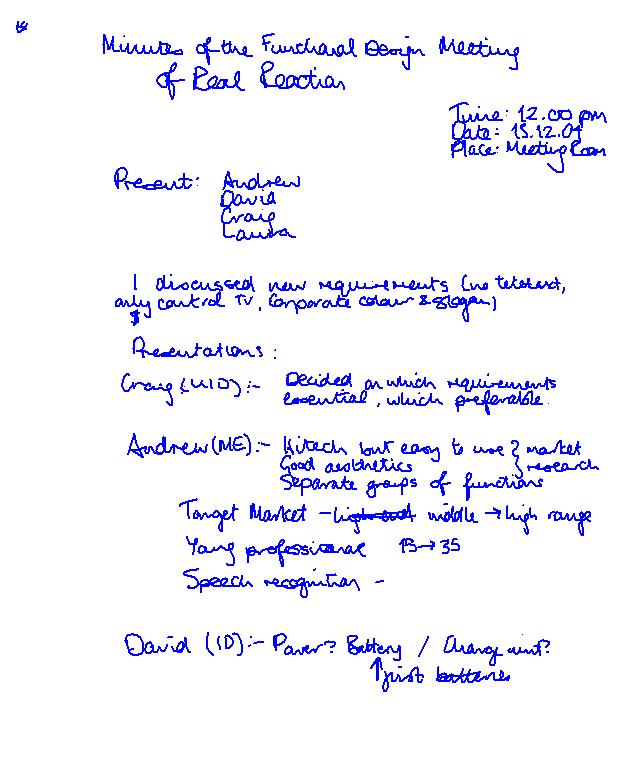 Minutes of the Functional Design Meeting
of Real Reaction
Time: 12.00 pm
Date: 15.12.04
Place: Meeting Room
Present: Andrew
David
Craig
Laura
I discussed new requirements (no teletext,
only control TV, Corporate colour & slogan)
Presentations:
Craig (UID):- Decided on which requirements
essential, which preferable.
Andrew (ME):- Hitech but easy to use } market
Good aesthetics } research
Separate groups of functions
Target Market - high end middle → high range
Young professional 15 → 35
Speech recognition -
David (ID):- Power? Battery / Charging unit?
↑ just batteries